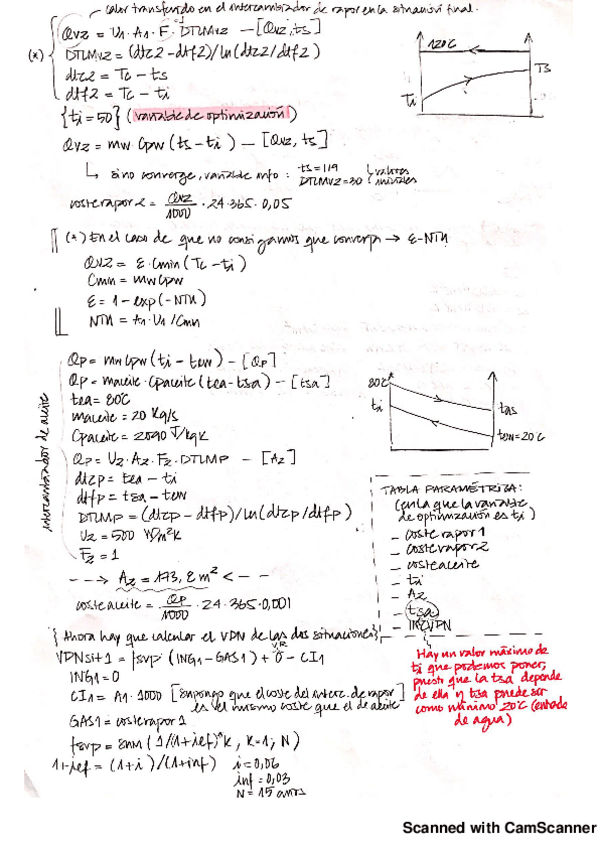 calor transferido en el intercambiador de vapor en la situación final.
Qv2 = U1·A1·F·DTLMv2 – [Qv2, ts]
(*)
DTLMv2 = (dtc2 – dtf2)/ln(dtc2/dtf2)
dtc2 = Tc – ts
dtf2 = Tc – ti
{ti = 50} (variable de optimización)
Qv2 = mw·Cpw(ts – ti) – [Qv2, ts]
↳ si no converge, variable info: ts = 119
DTLMv2 = 30
valores iniciales
costevapor2 = Qv2/1000 · 24·365·0,05
120ºC
TS
Ti
(*) En el caso de que no consigamos que converja → E-NTU
Qv2 = E·Cmin(Tc – ti)
Cmin = mw Cpw
E = 1 – exp(-NTU)
NTU = A1·U1/Cmin
intercambiador de aceite
Qp = mw Cpw(ti – tew) – [Qp]
Qp = maceite·Cpaceite(tea – tsa) – [tsa]
tea = 80ºC
maceite = 20 Kg/s
Cpaceite = 2090 J/kgK
Qp = U2·A2·F2·DTLMP – [A2]
dtcp = tea – ti
dtfp = tsa – tew
DTLMP = (dtcp – dtfp)/ln(dtcp/dtfp)
U2 = 500 W/m²K
F2 = 1
---> A2 = 173,8 m² <--
costeaceite = Qp/1000 · 24·365·0,001
80ºC
ti
tas
tew = 20ºC
TABLA PARAMÉTRICA:
(en la que la variable
de optimización es ti)
– costevapor1
– costevapor2
– costeaceite
– ti
– A2
– tsa
– INCVPN
Hay un valor máximo de
ti que podemos poner,
puesto que la tsa depende
de ella y tsa puede ser
como mínimo 20ºC (entrada
de agua)
{Ahora hay que calcular el VPN de las dos situaciones}
V.R
VPNsit1 = fsvp·(ING1 – GAS1) + 0 – CI1
ING1 = 0
CI1 = A1·1000 [supongo que el coste del interc. de vapor
es el mismo coste que el de aceite
GAS1 = costevapor1
fsvp = sum(1/(1+ief)^k, k=1; N)
1+ief = (1+i)/(1+inf)
i = 0,06
inf = 0,03
N = 15 años
Scanned with CamScanner